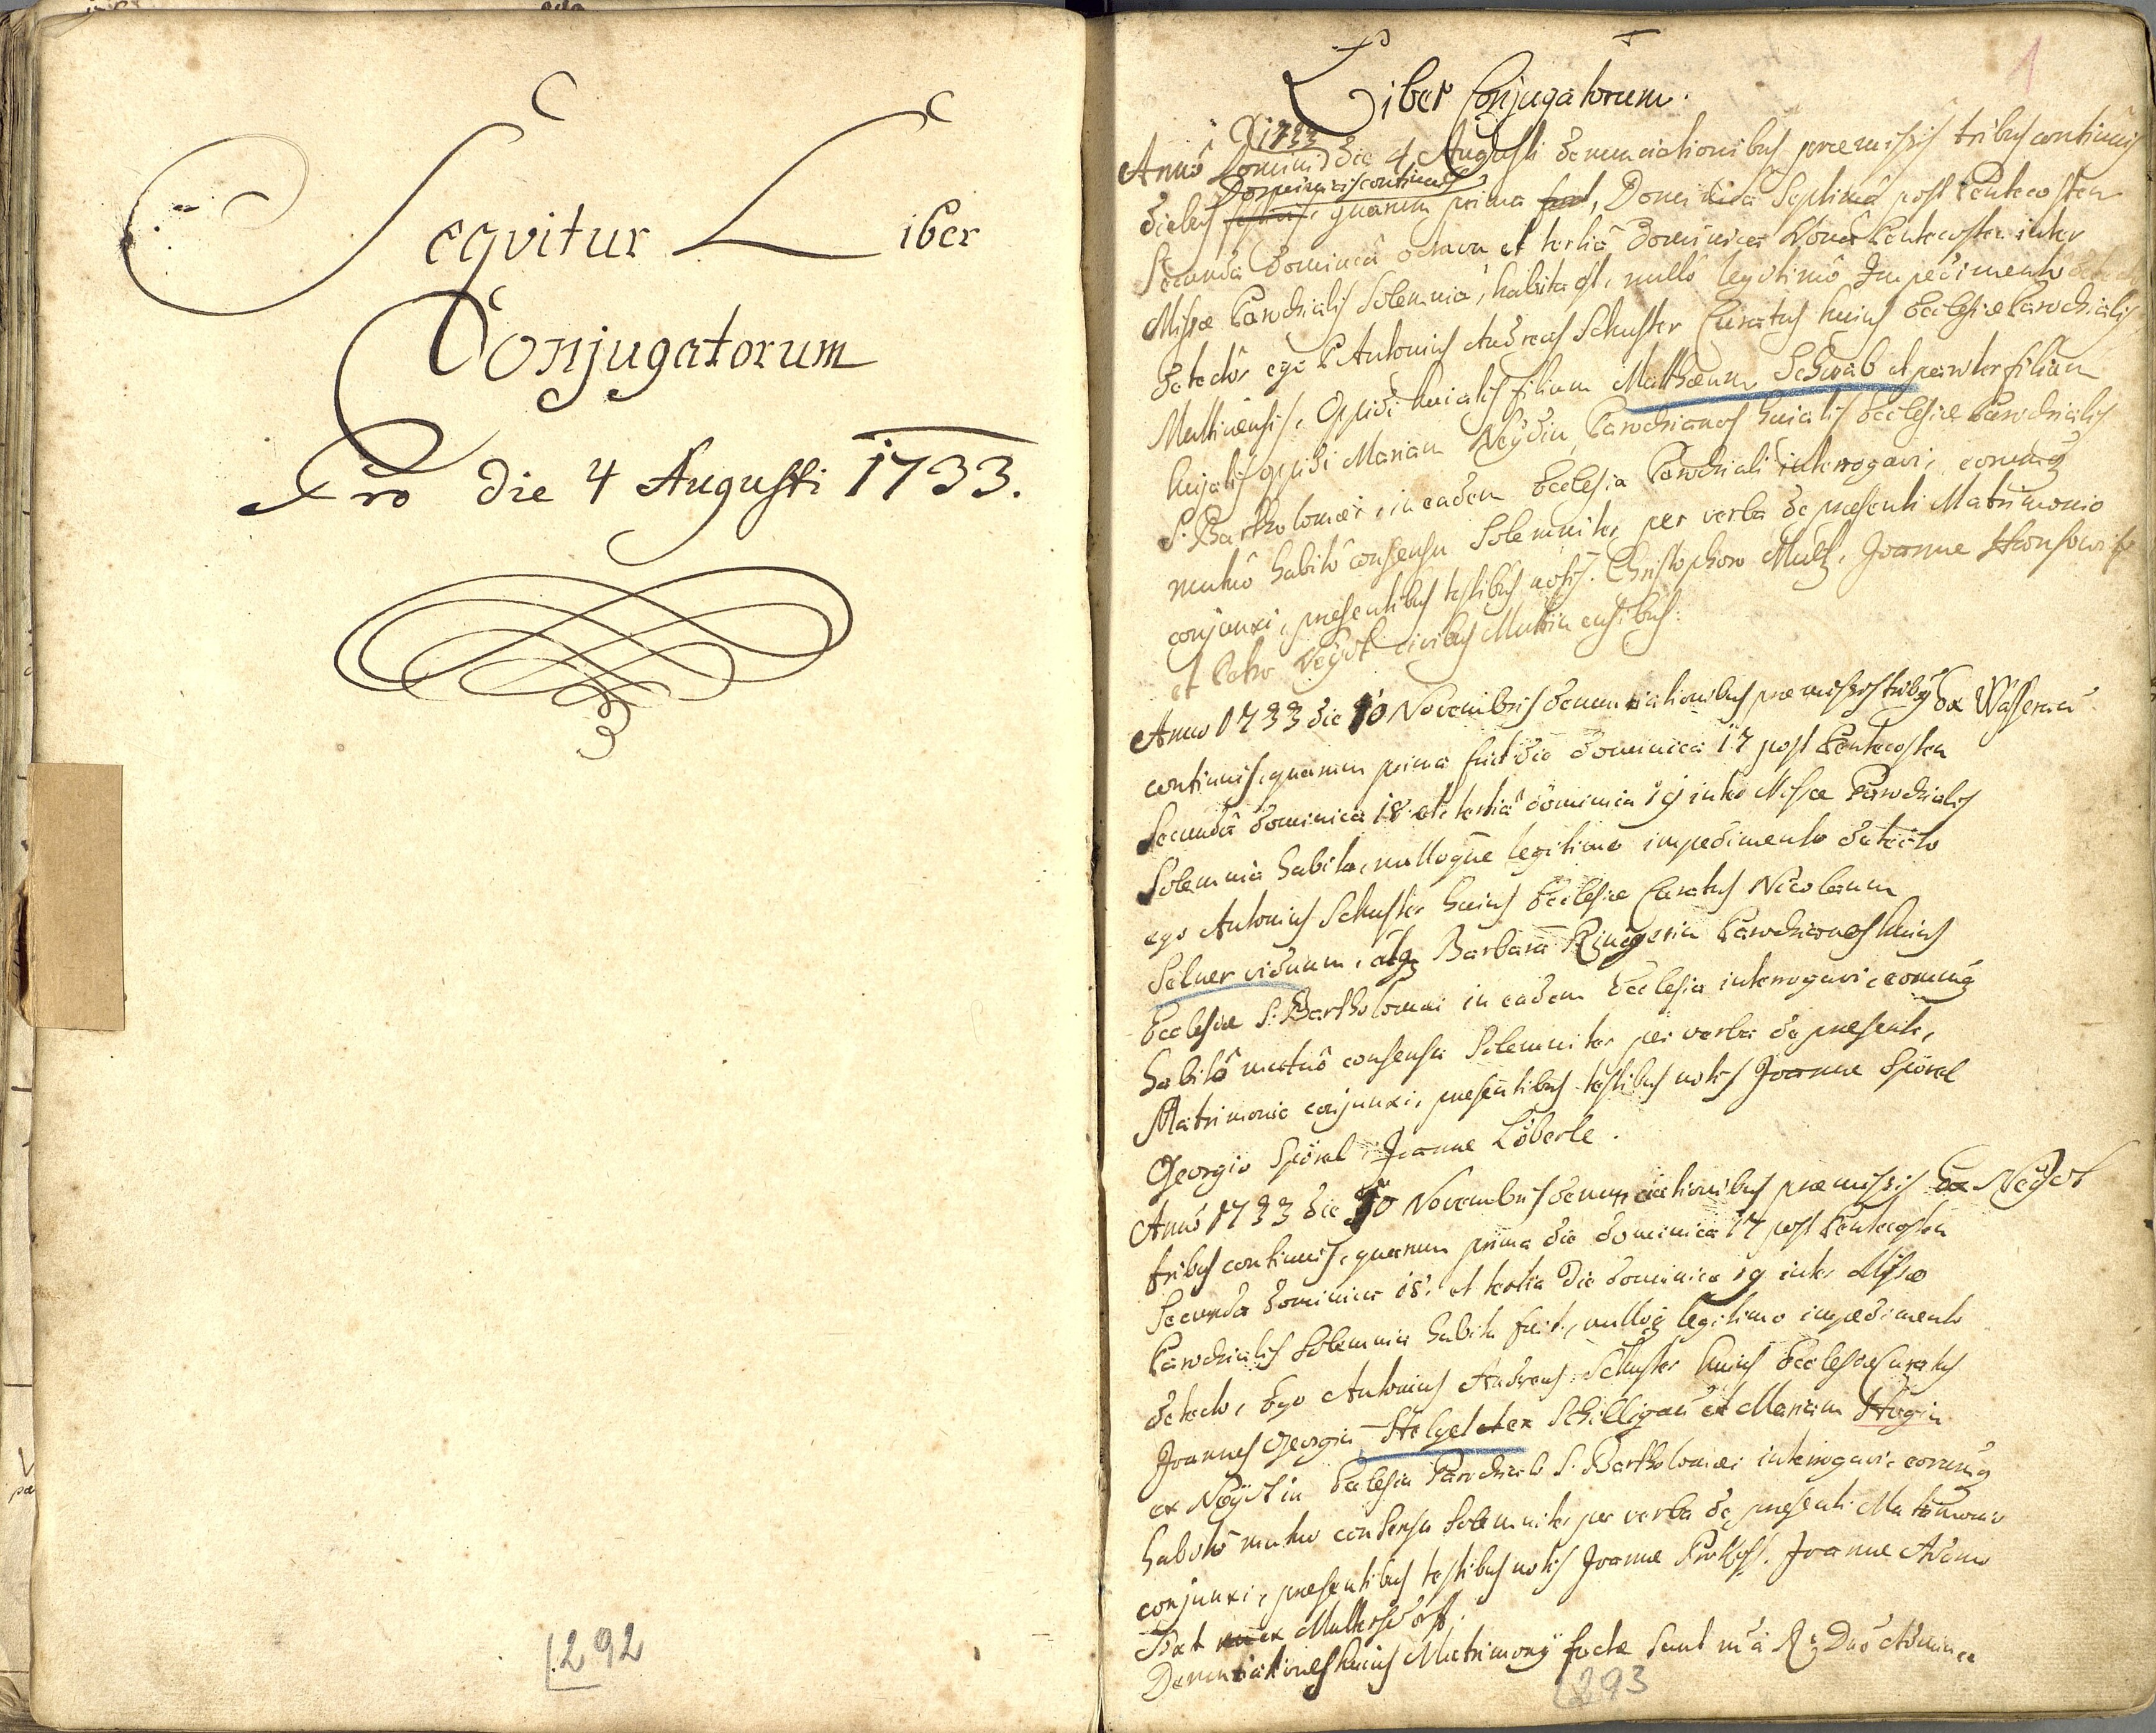 Sequitur Liber
Conjugatorum
Pro die 4 Augusti 1733.
292
1
Liber Conjugatorum.
1733
Anno Domini die 4 Augusti denunciationibus praemissis tribus continuis
Dominicis continuis
diebus festivis, quarum prima fuit, Dominica Septima post Pentecosten
Secunda Dominica octava et tertia Dominica Nona Pentecosten inter
Missae Parochialis Solemnia, habita est, nullo legitimo Impedimento
detecto, ego P Antonius Andreas Schuster Curatus huius Ecclesiae Parochialis
Oppidi huialis filium Mathaeum Schwab et pariter filiam
hujalis oppidi Mariam Neydin, Parochianos huialis Ecclesiae Parochialis
S. Bartholomaei, in eadem Ecclesia Parochiali interrogavi, eorumq
mutuo habito consensu Solemniter per verba de praesenti Matrimonio
conjunxi, praesentibus testibus notis. Christophoro Multz, Joanne
et Petro Neydt civibus
Anno 1733 die 10 Novembris denunciationibus praemissis tribus ex Wasserau
continuis, quarum prima fuit die Dominica 17 post Pentecosten
Secunda Dominica 18 et tertia Dominica 19 inter Missae Parochialis
Solemnia habita, nulloque legitimo impedimento detecto
ego Antonius Schuster huius Ecclesiae Curatus Nicolaum
Selner viduum, atq Barbara Parochianos huius
Ecclesiae S. Bartholomaei in eadem Ecclesia interrogavi eorumq
habito mutuo consensu Solemniter per verba de praesenti,
Matrimonio conjunxi, praesentibus testibus notis Joanne Spörel
Georgio Spörel Joanne Löberle.
Anno 1733 die 10 Novembris denunciationibus praemissis ex Neydt
tribus continuis, quarum prima die Dominica 17 post Pentecosten
Secunda Dominica 18, et tertia die Dominica 19 inter Missae
Parochialis Solemnia habita fuit, nulloq legitimo impedimento
detecto, Ego Antonius Andreas Schuster huius Ecclesiae Curatus
Joannes Georgiu Stelzel ex Schilligau et Mariam Hugin
ex Neydt in Ecclesia Parochiali S. Bartholomaei interrogavi eorumq
habito mutuo consensu Solemniter per verba de praesenti Matrimonio
conjunxi, praesentibus testibus notis Joanne Prokoff. Joanne Adamo
ex
Denunciationes huius Matrimonij factae sunt
293